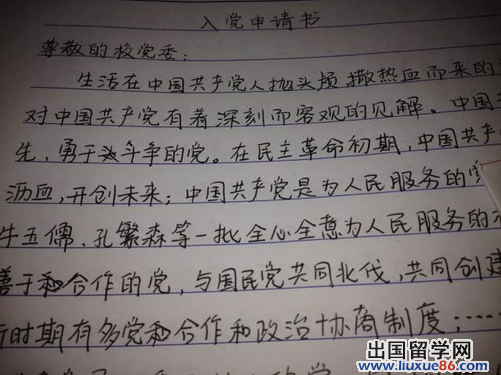 入党申请书
尊敬的校党委：
生活在中国共产党人抛头颅 撒热血而来的
对中国共产党有着深刻而客观的见解。中国
先、勇于斗争的党。在民主革命初期，中国共产
沥血，开创未来；中国共产党是为人民服务的
牛五儒、孔繁森等一批全心全意为人民服务的
善于和合作的党，与国民党共同北伐，共同创建
新时期有多党和合作和政治协商制度；……
出国留学网
www.liuxue86.com